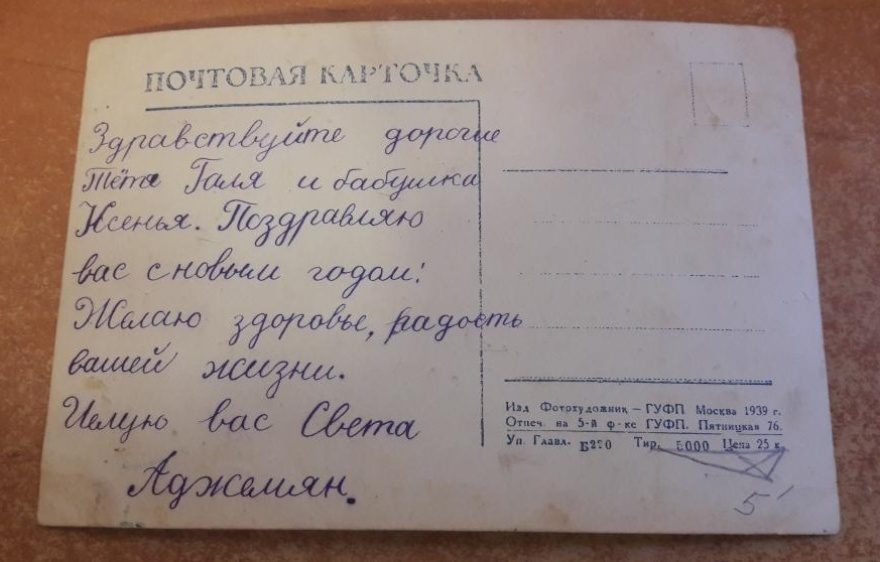 ПОЧТОВАЯ КАРТОЧКА
Здравствуйте дорогие
тётя Галя и бабушка
Ксенья. Поздравляю
вас с новым годом!
Желаю здоровье, радость
вашей жизни.
Целую вас Света
Аджемян.
Изд Фотохудожник – ГУФП Москва 1939 г.
Отпеч. на 5-й ф-ке ГУФП. Пятницкая 76.
Уп. Главл. Тир. 5000 Цена 25 к.
5